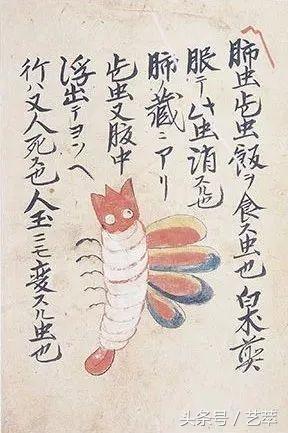 肺虫此虫飯ヲ食ス虫也 白朮煎
服テ此虫消ス也
肺蔵ニアリ
此虫又腹中
浮出テヨソヘ
行ハ又人死ス也人玉ニモ変スル虫也
头条号/艺萃